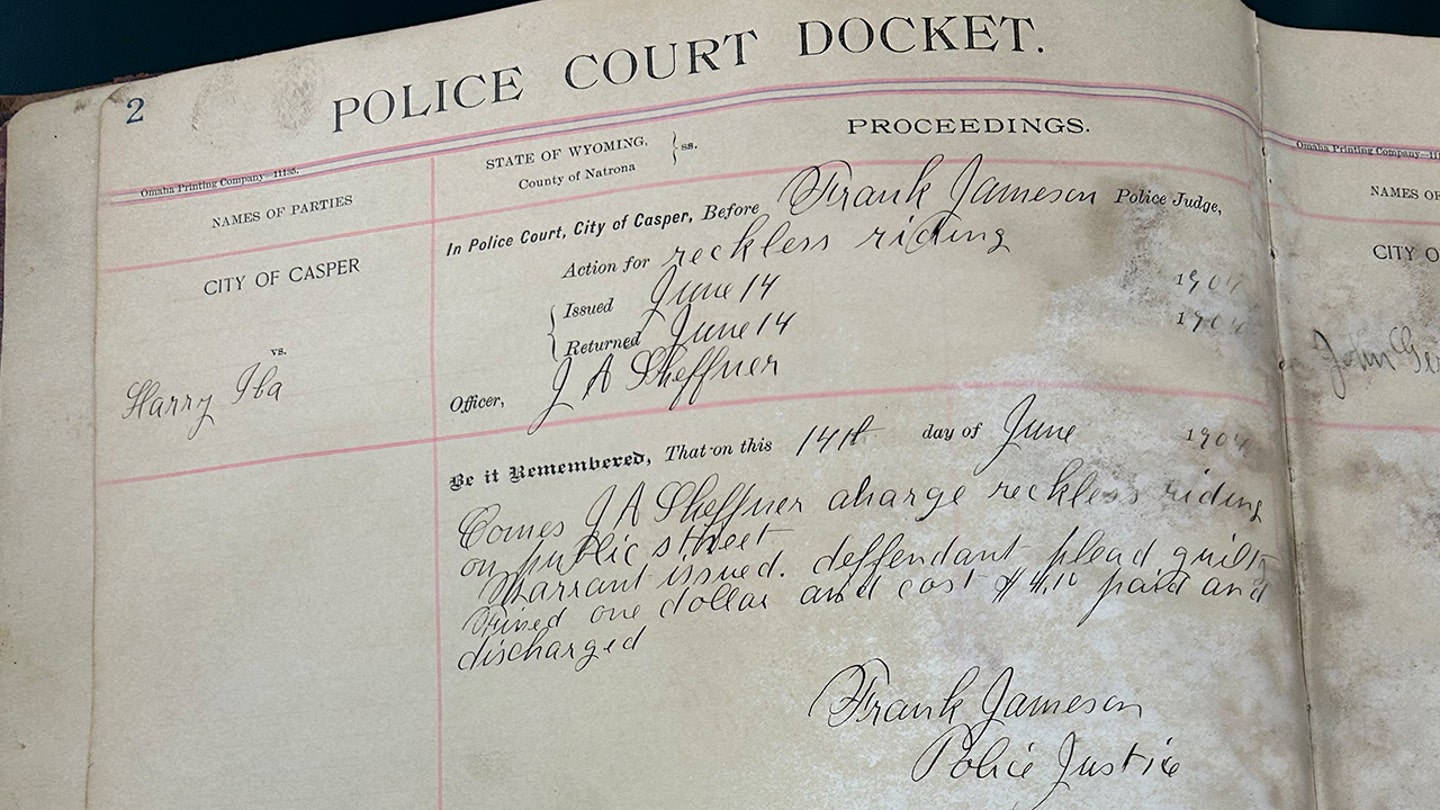 2
POLICE COURT DOCKET.
Omaha Printing Company 11135.
NAMES OF PARTIES
STATE OF WYOMING,
County of Natrona
} ss.
PROCEEDINGS.
CITY OF CASPER
vs.
Harry Iba
In Police Court, City of Casper, Before Frank Jameson Police Judge,
Action for reckless riding
Issued June 14 1904
Returned June 14 1904
Officer, J A Sheffner
Be it Remembered, That on this 14th day of June 1904
Comes J A Sheffner charge reckless riding
on public street
Warrant issued. deffendant plead guilty
Fined one dollar and cost $4.10 paid and
discharged
Frank Jameson
Police Justice
Omaha Printing Company
NAMES OF
CITY O
John